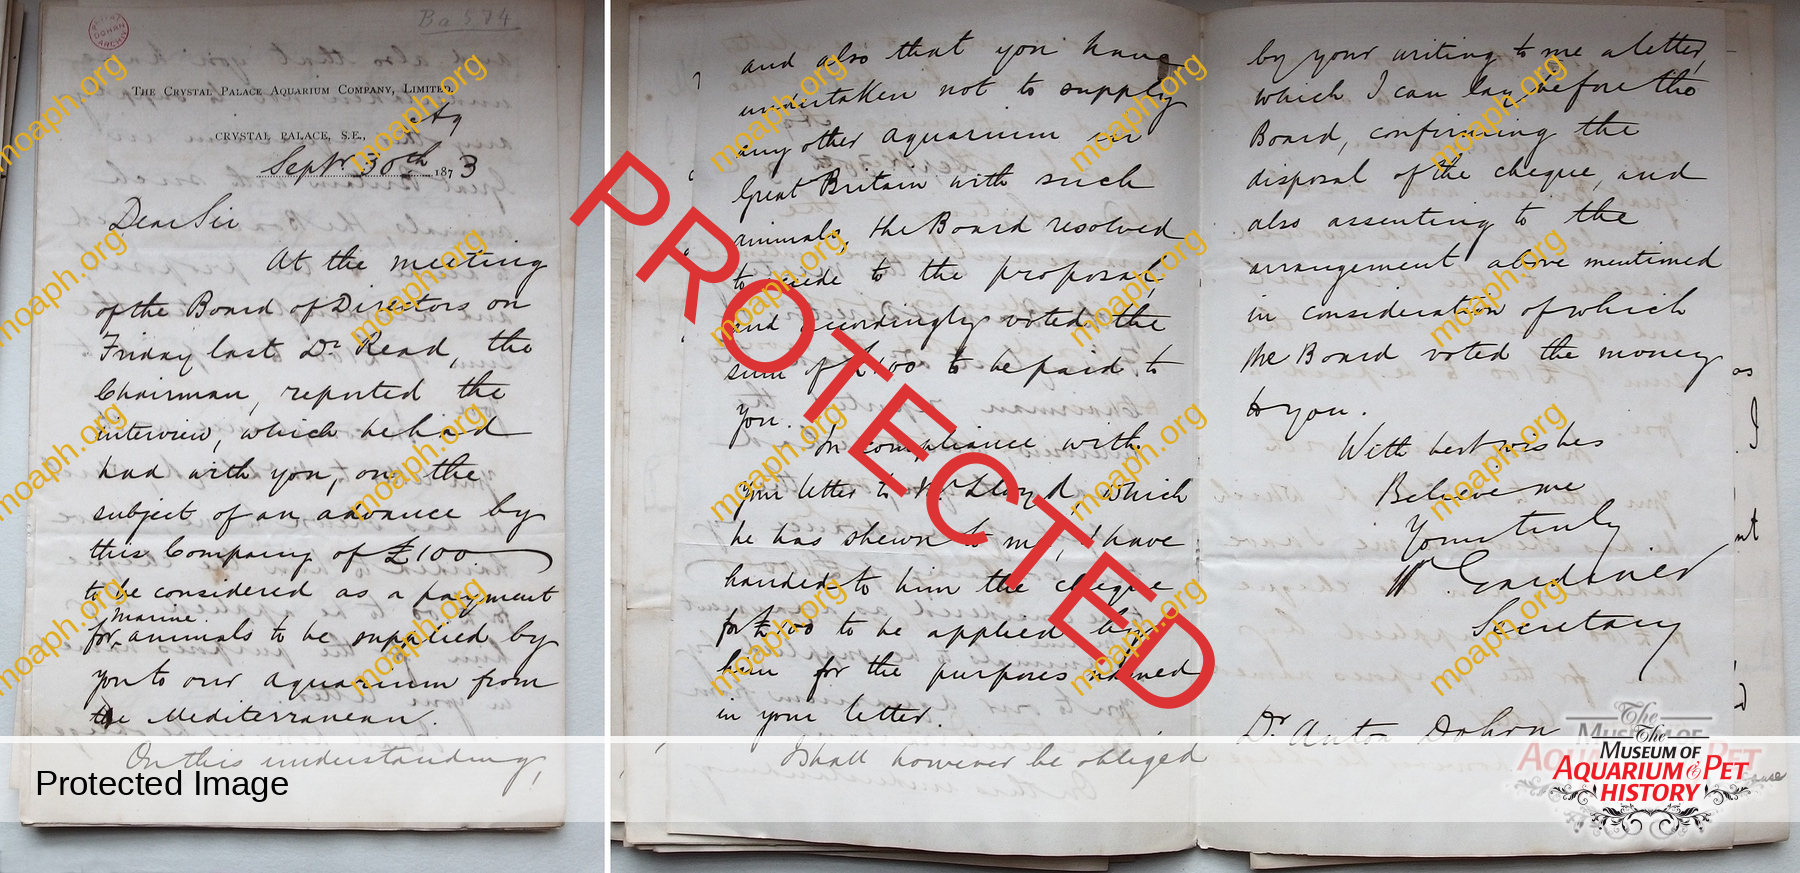 Ba 574
THE CRYSTAL PALACE AQUARIUM COMPANY, LIMITED.
CRYSTAL PALACE, S.E.,
Septr 30th 1873
Dear Sir
At the meeting
of the Board of Directors on
Friday last Dr Read, the
Chairman, reported the
interview, which he had
had with you, on the
subject of an advance by
this Company of £100
to be considered as a payment
marine
for animals to be supplied by
you to our aquarium from
the Mediterranean.
On this understanding,
and also that you have
undertaken not to supply
any other aquarium in
Great Britain with such
animals, the Board resolved
to accede to the proposal,
and accordingly voted the
sum of £100 to be paid to
you.
In compliance with
your letter to Mr Lloyd, which
he has shewn to me, I have
handed to him the cheque
for £100 to be applied by
him for the purposes named
in your letter.
I shall however be obliged
by your writing to me a letter,
which I can lay before the
Board, confirming the
disposal of the cheque, and
also assenting to the
arrangement above mentioned
in consideration of which
the Board voted the money
to you.
With best wishes
Believe me
Yours truly
W. Gardiner
Secretary
Dr Anton Dohrn
PROTECTED
Protected Image
The
MUSEUM OF
AQUARIUM & PET
HISTORY
moaph.org